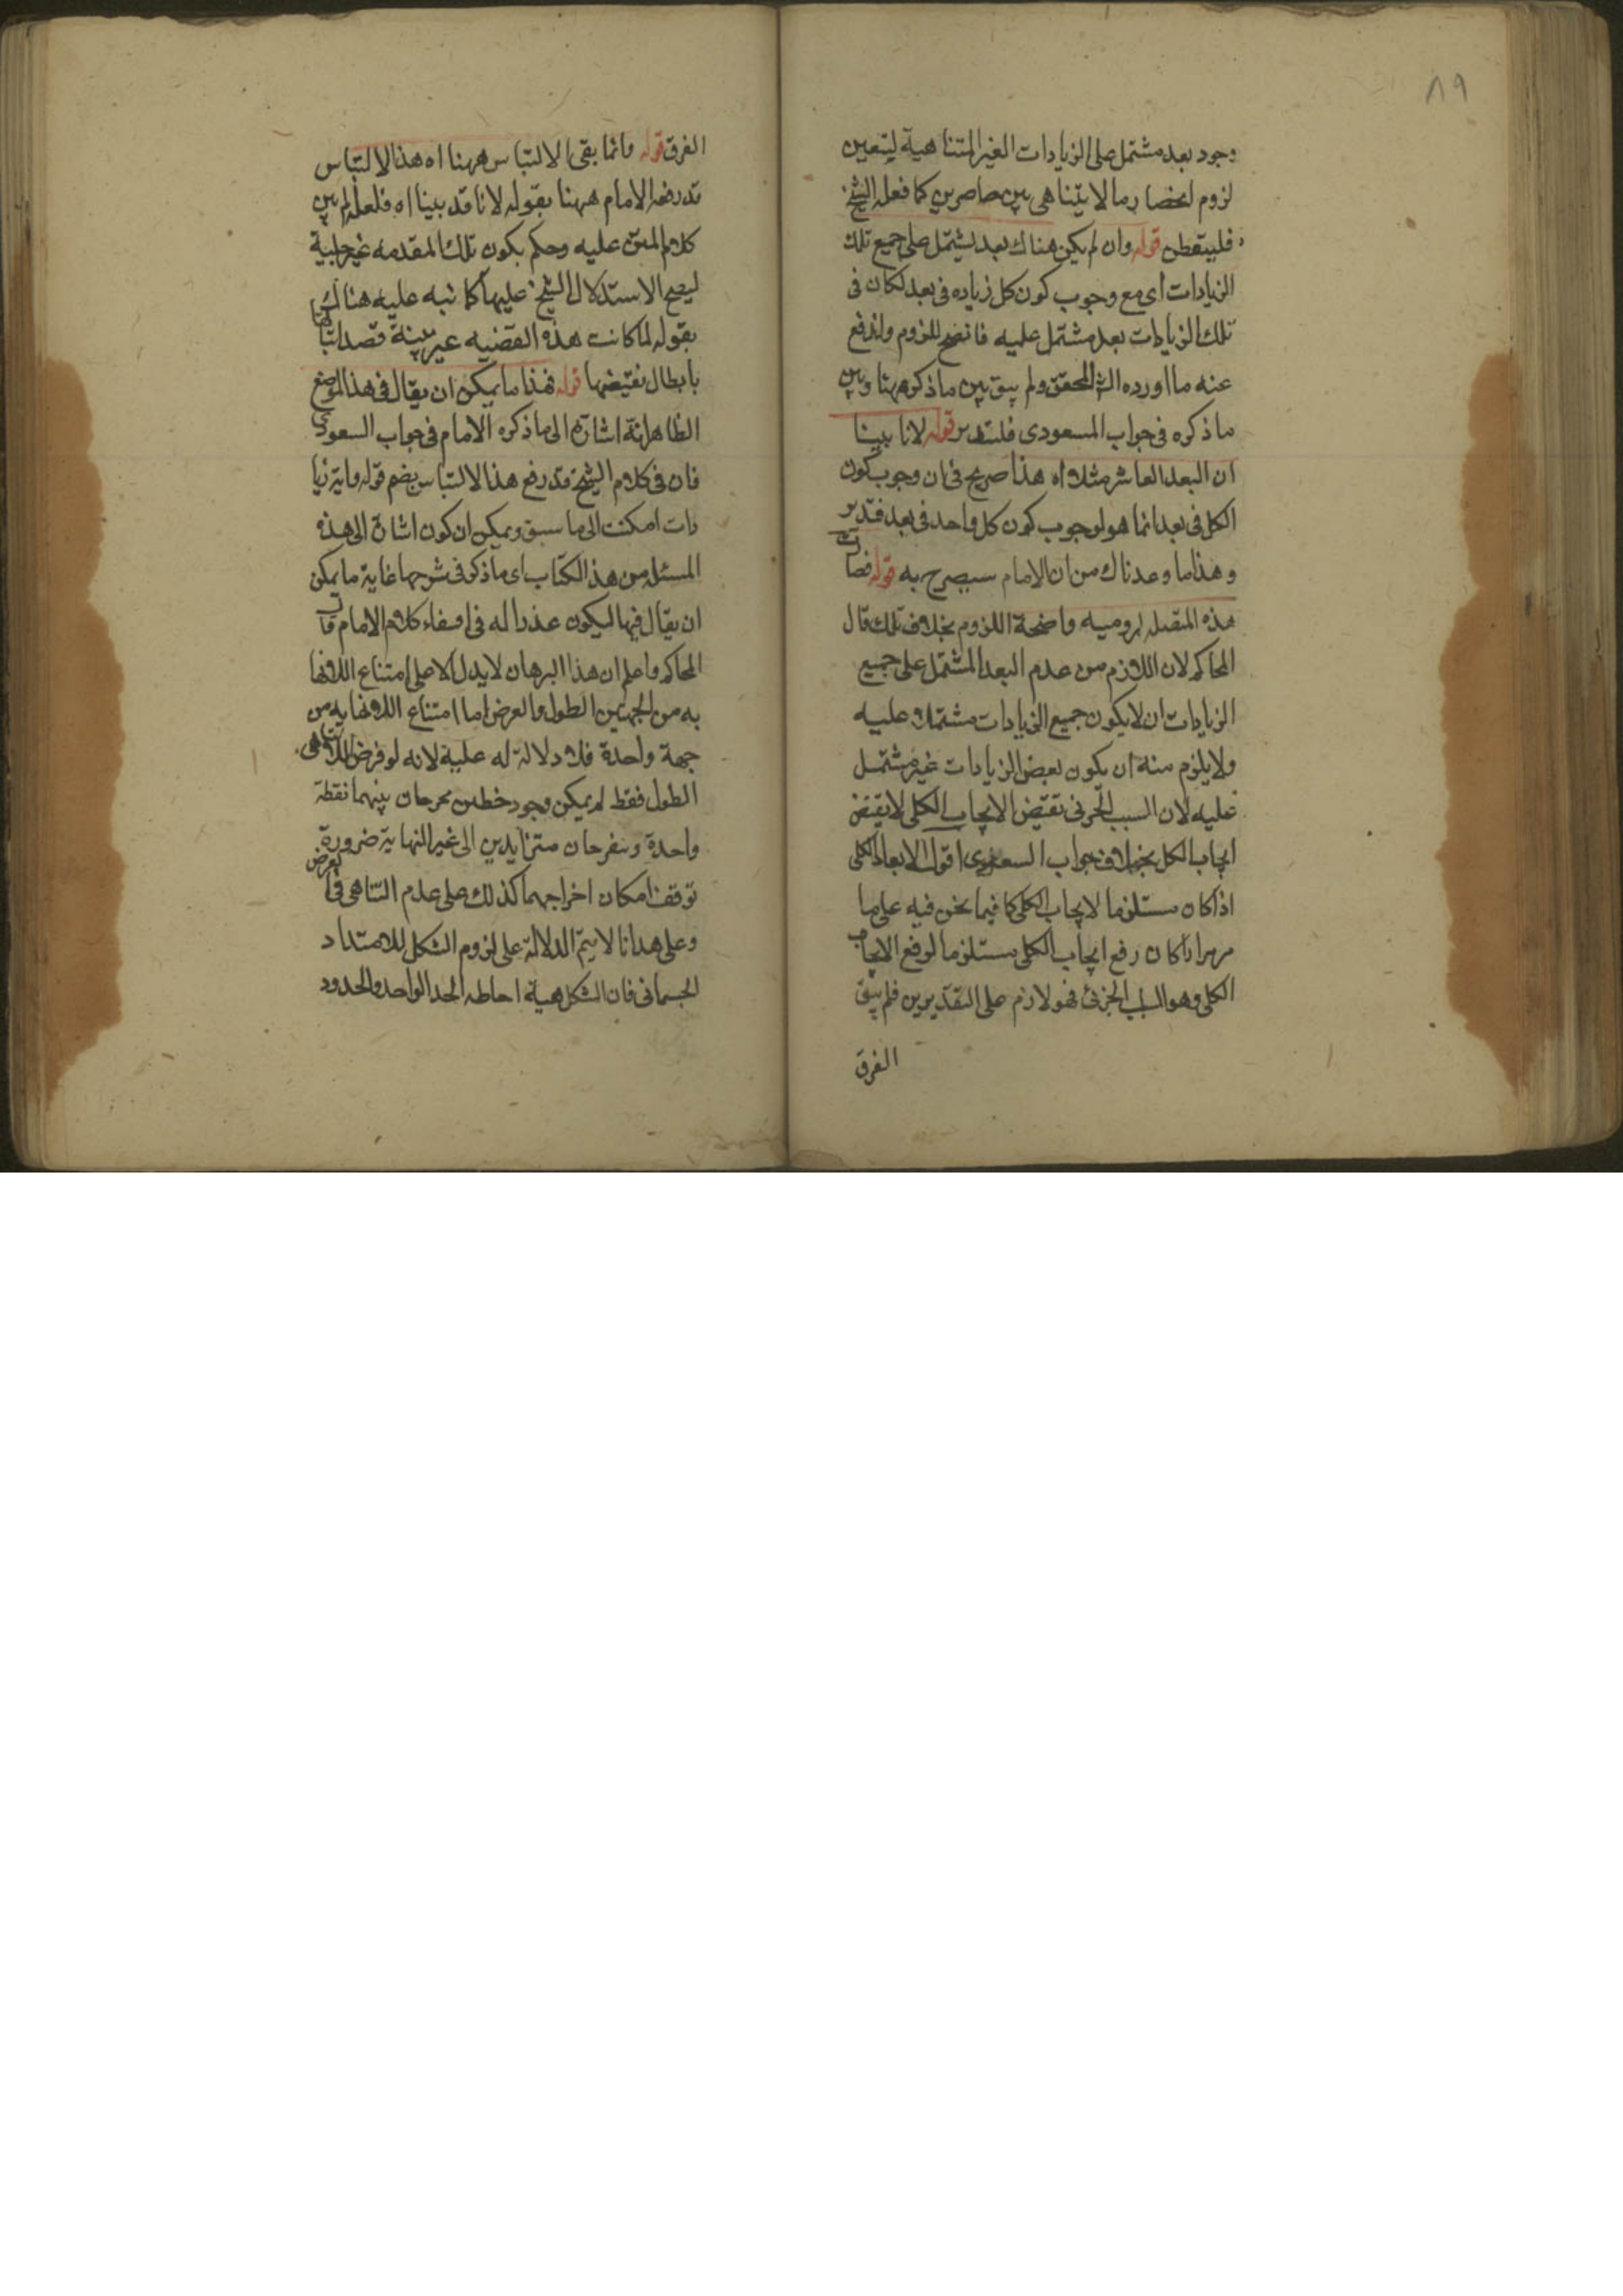 ٨٩
وجود بعد مشتمل على الزيادات الغير المتناهية ليتعين
لزوم انحصار ما لا يتناهى بين حاصرين كما فعله الشيخ
فليتفطن قوله وان لم يكن هناك بعد يشتمل على جميع تلك
الزيادات اى مع وجوب كون كل زياده فى بعد لكان فى
تلك الزيادات بعد مشتمل عليه فاتضح اللزوم واندفع
عنه ما اورده الش المحقق ولم يبق بين ما ذكره ههنا وبين
ما ذكره فى جواب المسعودى فلتدبر قوله لانا بينا
ان البعد العاشر مثلا اه هذا صريح فى ان وجوب كون
الكل فى بعد انما هو لوجوب كون كل واحد فى بعد فتدبر
وهذا ما وعدناك من ان الامام سيصرح به قوله فصارت
هذه المتصله لروميه واضحة اللزوم بخلاف تلك قال
المحاكم لان اللازم من عدم البعد المشتمل على جميع
الزيادات ان لا يكون جميع الزيادات مشتملا عليه
ولا يلزم منه ان يكون بعض الزيادات غير مشتمل
عليه لان السبب الجزئى نقيض الايجاب الكلى لا نقيض
ايجاب الكل بخلاف جواب السعودى اقول الابعاد الكلى
اذا كان مستلزما لايجاب الكلى كما فيما نحن فيه على ما
مر مرارا كان رفع ايجاب الكلى مستلزما لرفع الايجاب
الكلى وهو السلب الجزئى فهو لازم على التقديرين فلم يبق
الفرق
الفرق قوله وانما بقى الالتباس ههنا اه هذا الالتباس
قد رفعه الامام ههنا بقوله لانا قد بينا اه فلعله لم يبن
كلام المتن عليه وحكم بكون تلك المقدمه غير جلية
ليصح الاستدلال الشيخ عليها كما نبه عليه هنالك
بقوله لما كانت هذه القضيه غير بينة قصد اثباتها
بابطال نقيضها قوله فهذا ما يمكن ان يقال فى هذا الموضع
الظاهر انه اشارة الى ما ذكره الامام فى جواب السعودى
فان فى كلام الشيخ قد رفع هذا الالتباس بضم قوله واية زيا
دات امكنت الى ما سبق ويمكن ان كون اشارة الى هذه
المسئله من هذا الكتاب اى ما ذكر فى شرحها غاية ما يمكن
ان يقال فيها ليكون عذرا له فى افشاء كلام الامام قال
المحاكم واعلم ان هذا البرهان لا يدل الا على امتناع اللانها
يه من الجهتين الطول والعرض اما امتناع اللانهايه من
جهة واحدة فلا دلالة له عليه لانه لو فرض اللاتناهى
الطول فقط لم يمكن وجود خطين محرحان بينهما نقطة
واحدة وسفرحان متزايدين الى غير النهاية ضرورة
توقف امكان اخراجهما كذلك على عدم التناهى فى العرض
وعلى هدانا لا يتم الدلالة على لزوم الشكل للامتداد
الجسمانى فان الشكل هيئة احاطه الحد الواحد والحدود